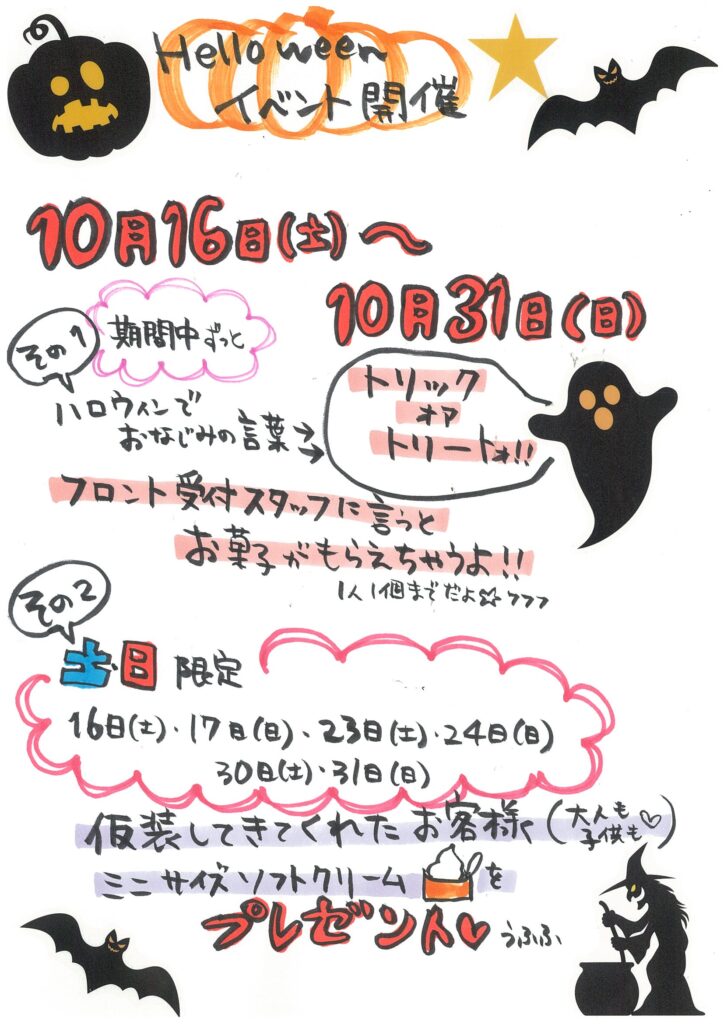 Helloween
イベント開催
10月16日(土)～
10月31日(日)
その1
期間中ずっと
ハロウィンで
おなじみの言葉→→
トリック
オア
トリートォ!!
フロント受付スタッフに言うと
お菓子がもらえちゃうよ!!
1人1個までだよ☆フフフ
その2
土・日限定
16日(土)・17日(日)・23日(土)・24日(日)
30日(土)・31日(日)
仮装してきてくれたお客様(大人も
子供も♡)
ミニサイズソフトクリームを
プレゼント♡うふふ